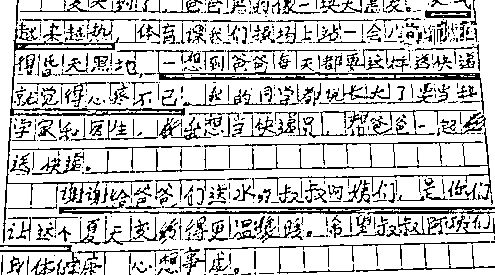 夏天到了，爸爸黑的像一块大黑炭。天气
越来越热，体育课我们操场上站一会儿
得昏天黑地，一想到爸爸每天都要这样送快递
就觉得心疼不已。我的同学都说长大了要当科
学家和医生，我想当快递员，帮爸爸一起
送快递。
谢谢给爸爸们送水的叔叔阿姨们，是你们
让这个夏天变得更温暖。希望叔叔阿姨们
身体健康 心想事成。